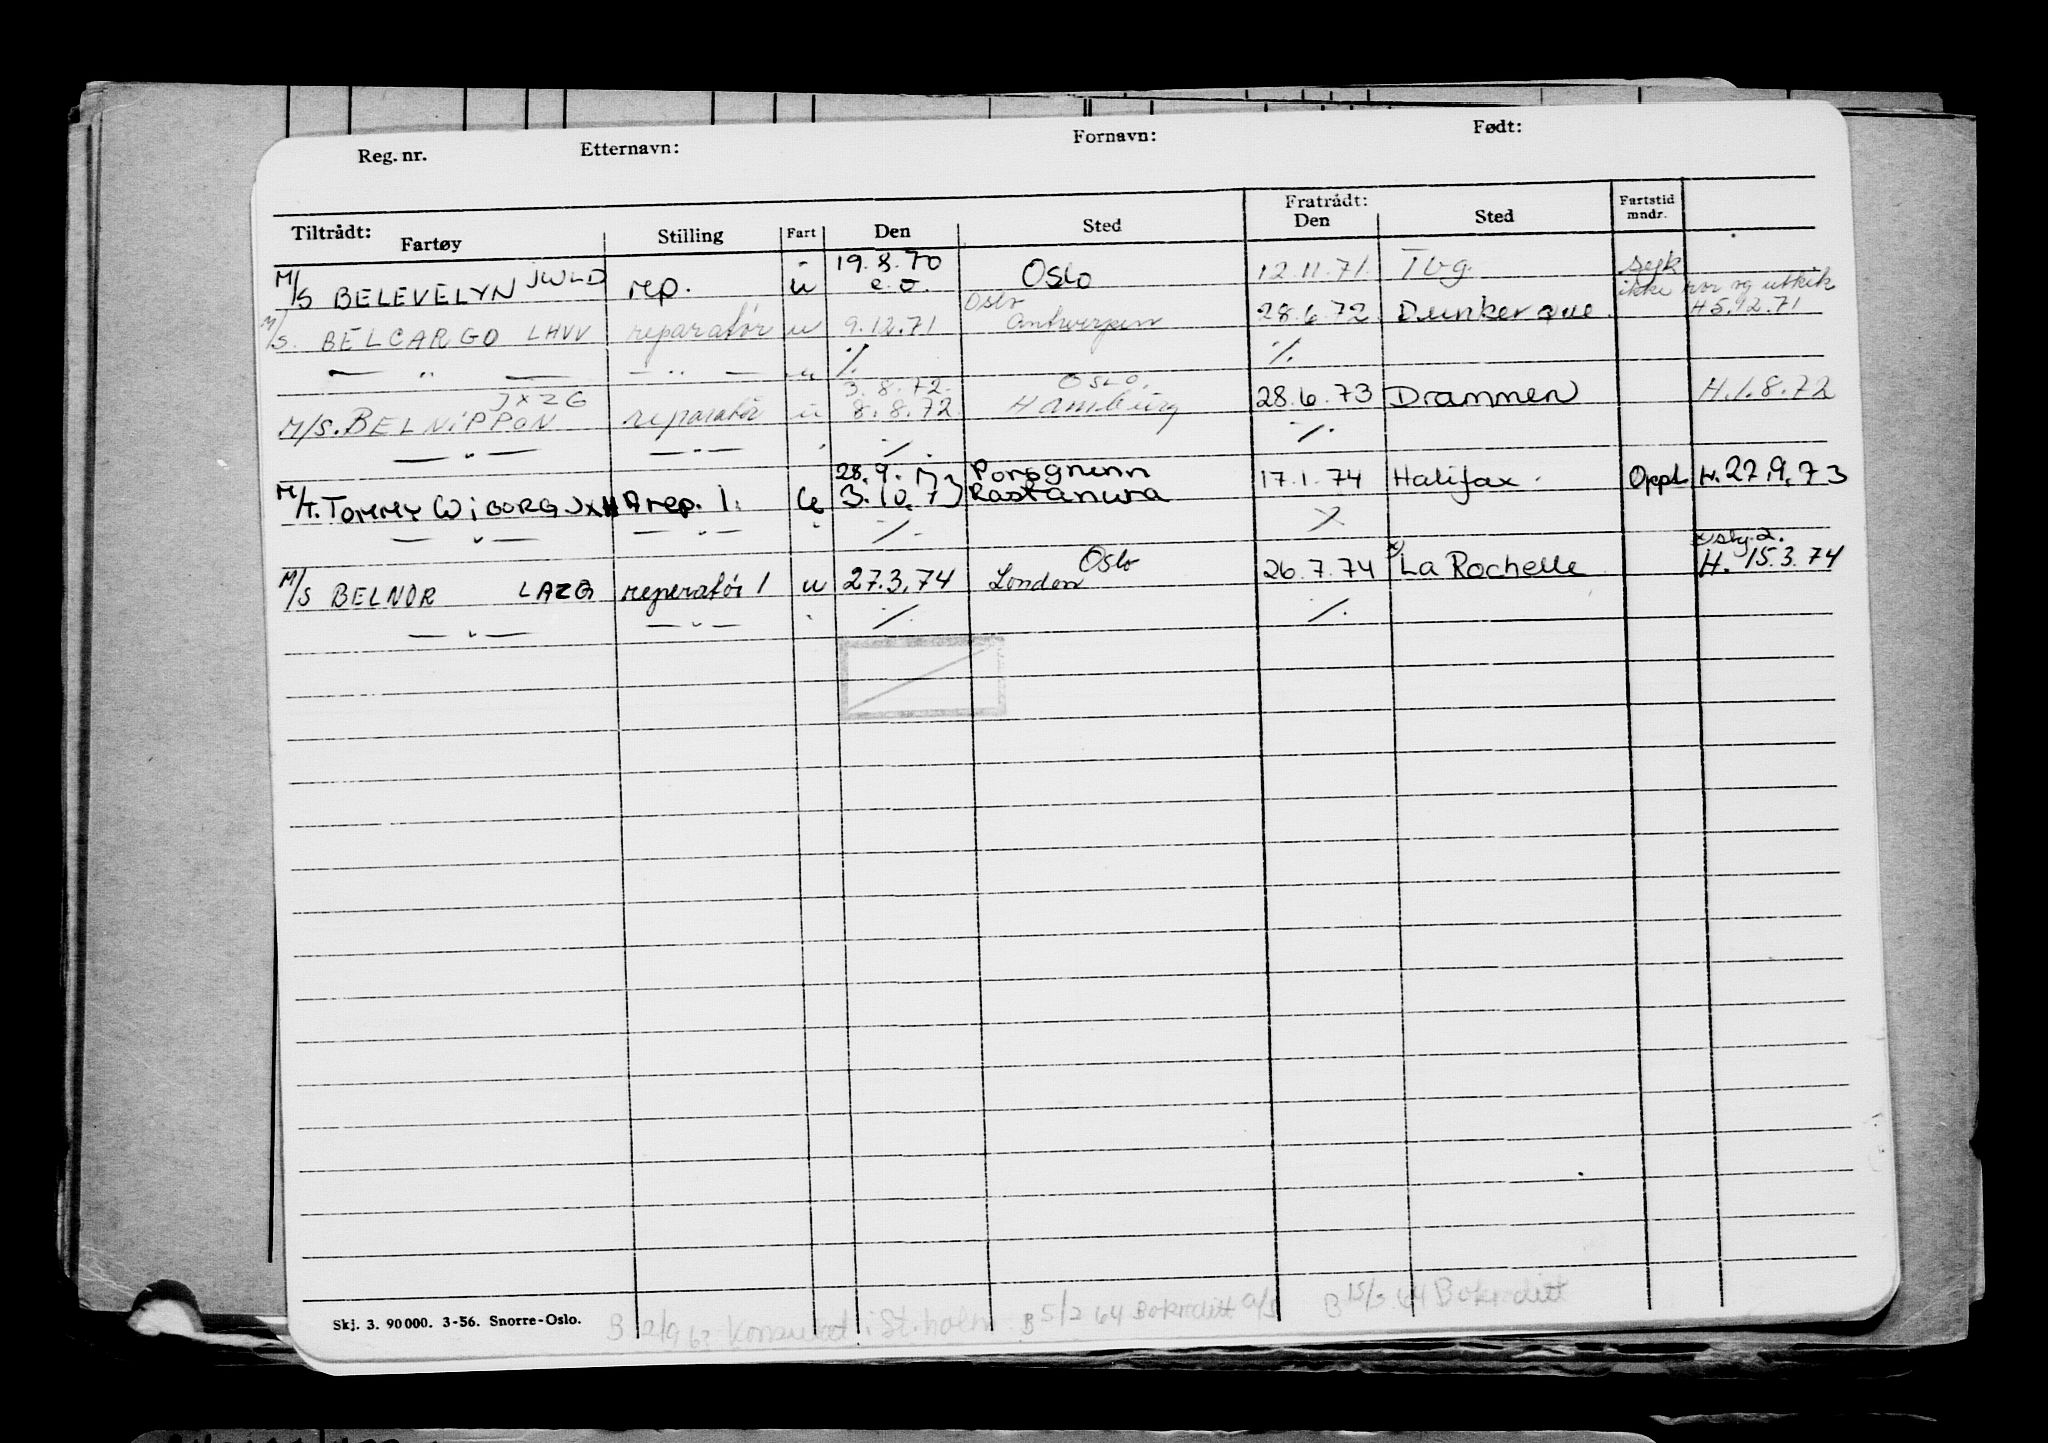 Reg. nr. Etternavn: Fornavn: Født:
Tiltrådt: Fratrådt: Fartstid mndr.
Fartøy Stilling Fart Den Sted Den Sted
M/S BELEVELYN JWLD rep. u 19.8.70 e.o. Oslo 12.11.71. Tbg. sejk ikke ror og utkik
M/S. BELCARGO LHVV reparatør u 9.12.71 Oslo Antwerpen 28.6.72. Dunkerque. H 5.12.71
— " — — " — " ·/. ·/.
M/S. BELNIPPON JXZG reparatør u 3.8.72. 8.8.72 OSLO. Hamburg 28.6.73 Drammen H.1.8.72
— " — — " — ·/. ·/.
M/T. TOMMY WIBORG JXHA rep. 1. u 28.9.73 3.10.73 Porsgrunn Rastanura 17.1.74 Halifax. Oppl. H.27.9.73
— " — — " — " ·/. ·/.
M/S BELNOR LAZG reperatør 1 u 27.3.74 Oslo London 26.7.74 x) La Rochelle x) skj.2. H. 15.3.74
— " — — " — ·/. ·/.
Skj. 3. 90 000. 3-56. Snorre-Oslo.
Konsulat i St.holm B 5/2 64 Bokreditt a/s B 15/3 64 Bokreditt